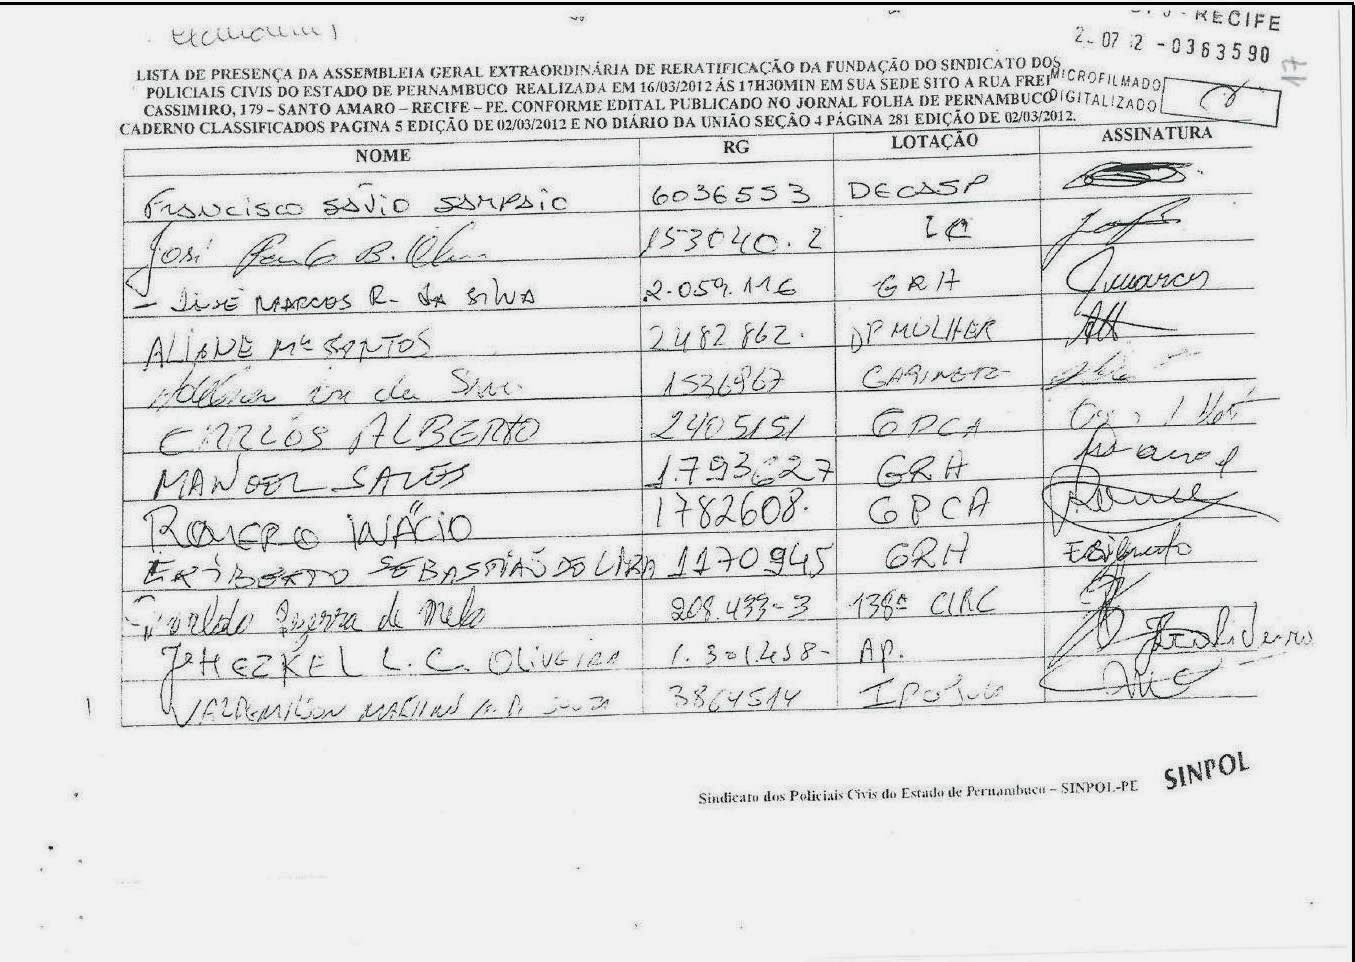 RECIFE
07 2 - 0363590
17
LISTA DE PRESENÇA DA ASSEMBLEIA GERAL EXTRAORDINÁRIA DE RERATIFICAÇÃO DA FUNDAÇÃO DO SINDICATO DOS
POLICIAIS CIVIS DO ESTADO DE PERNAMBUCO REALIZADA EM 16/03/2012 ÁS 17H30MIN EM SUA SEDE SITO A RUA FREI
MICROFILMADO
CASSIMIRO, 179 – SANTO AMARO – RECIFE – PE. CONFORME EDITAL PUBLICADO NO JORNAL FOLHA DE PERNAMBUCO
DIGITALIZADO
CADERNO CLASSIFICADOS PAGINA 5 EDIÇÃO DE 02/03/2012 E NO DIÁRIO DA UNIÃO SEÇÃO 4 PÁGINA 281 EDIÇÃO DE 02/03/2012.
NOME RG LOTAÇÃO ASSINATURA
FRANCISCO SÁVIO SAMPAIO 6036553 DECASP
José 153040.2
- JOSÉ MARCOS R. DA SILVA 2.059.116 GRH Jmarcos
ALIANE Mª SANTOS 2482862. DP MULHER
da 1536967 GABINETE
CARLOS ALBERTO 2405151 GPCA
MANOEL SALES 1.793627 GRH
ROMERO INÁCIO 1782608. GPCA
ERIBERTO SEBASTIÃO DE LIRA 1170945 GRH
de Melo 208.433-3 138ª CIRC
HEZKEL L. C. OLIVEIRA 1.301458- AP.
MARTINS 3864514 IPOJUCA
Sindicato dos Policiais Civis do Estado de Pernambuco – SINPOL-PE
SINPOL